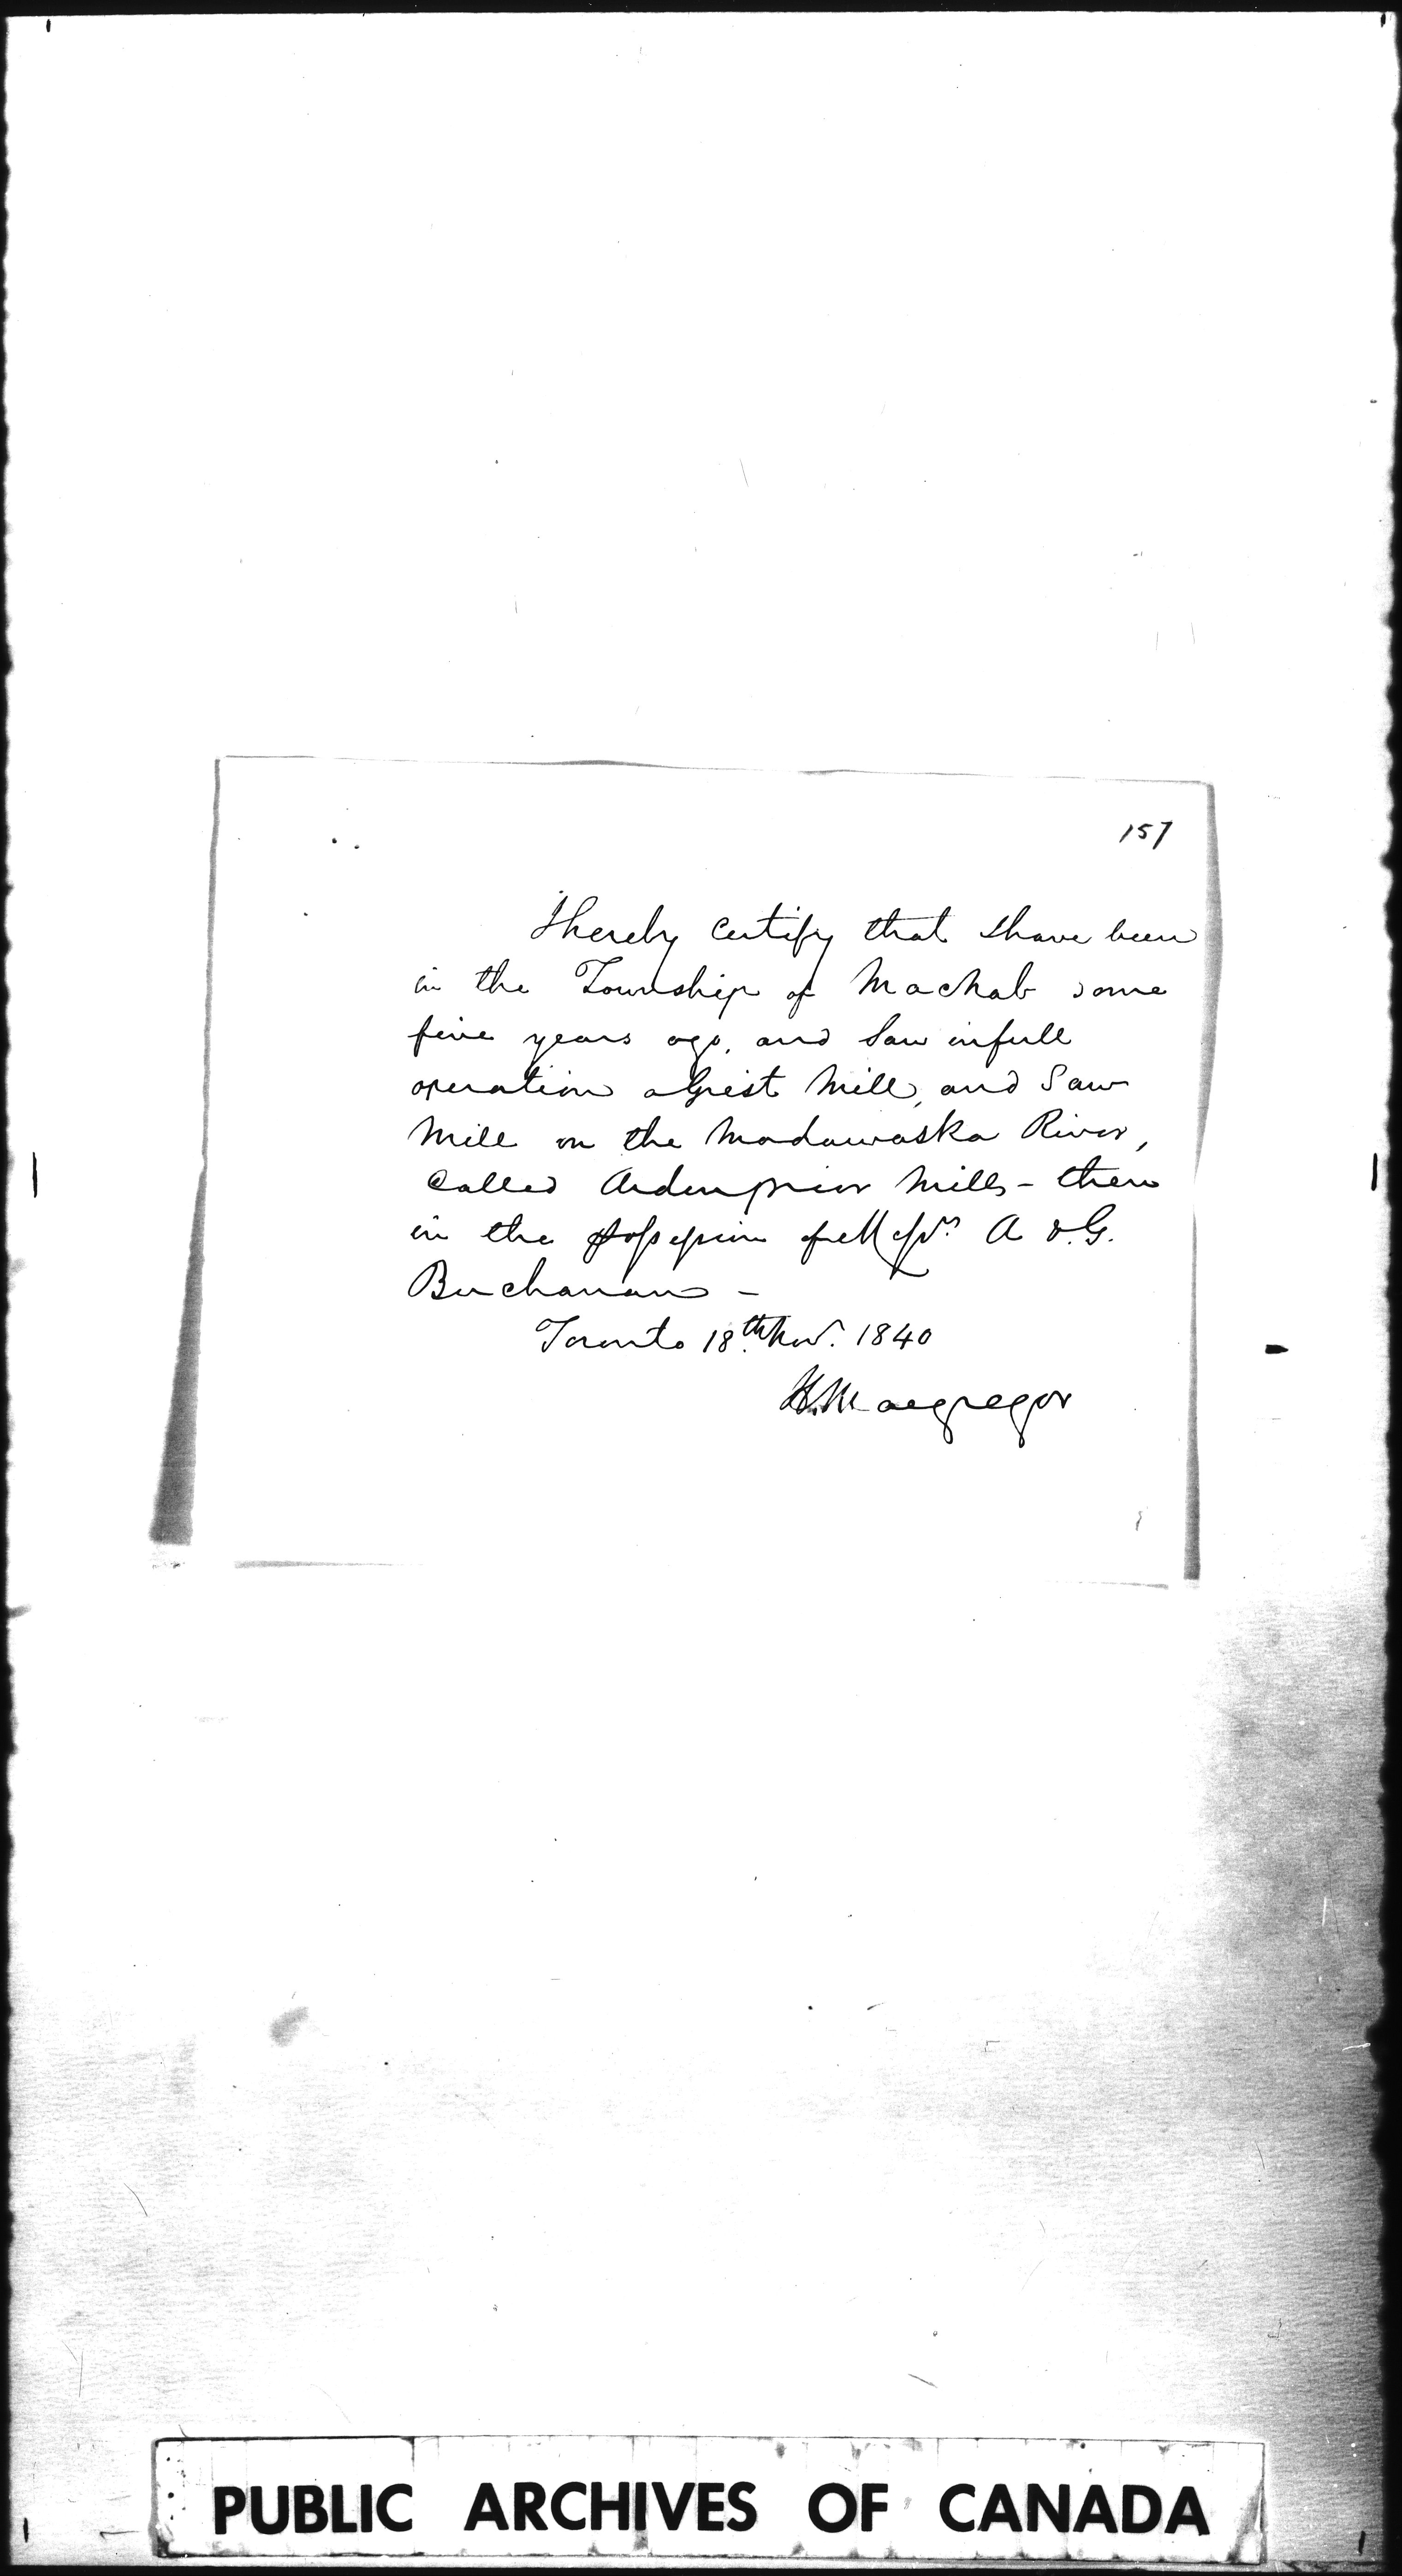 157
I hereby certify that I have been
in the Township of MacNab some
five years ago, and Saw in full
operation a Grist Mill, and Saw
Mill on the Madawaska River,
Called Ardenprior Mills - then
in the possession of Messrs. A & G.
Buchanan -
Toronto 18th. Nov. 1840
H. Macgregor
PUBLIC ARCHIVES OF CANADA